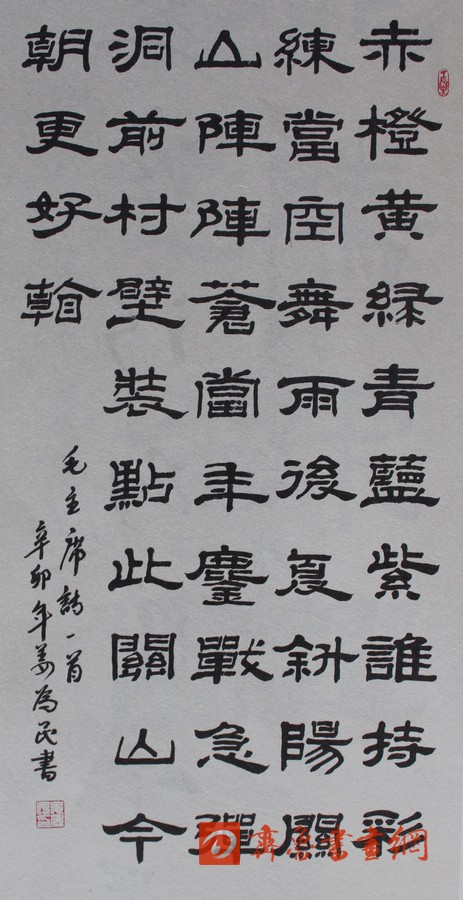 赤橙黄緑青藍紫誰持彩
練當空舞雨後复斜陽關
山陣陣蒼當年鏖戰急彈
洞前村壁裝點此關山今
朝更好看
毛主席詩一首
辛卯年姜為民書
齊魯書畫網